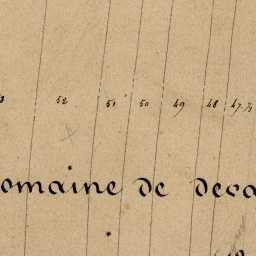 52 51 50 49 48 47
omaine de